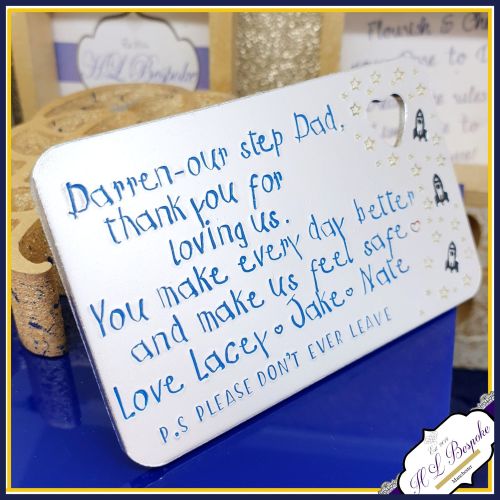 H L Bespoke
Flourish &
Darren-our step Dad,
thank you for
loving us.
You make every day better
and make us feel safe
Love Lacey Jake Nate
P.S PLEASE DON'T EVER LEAVE
H L Bespoke
Manchester